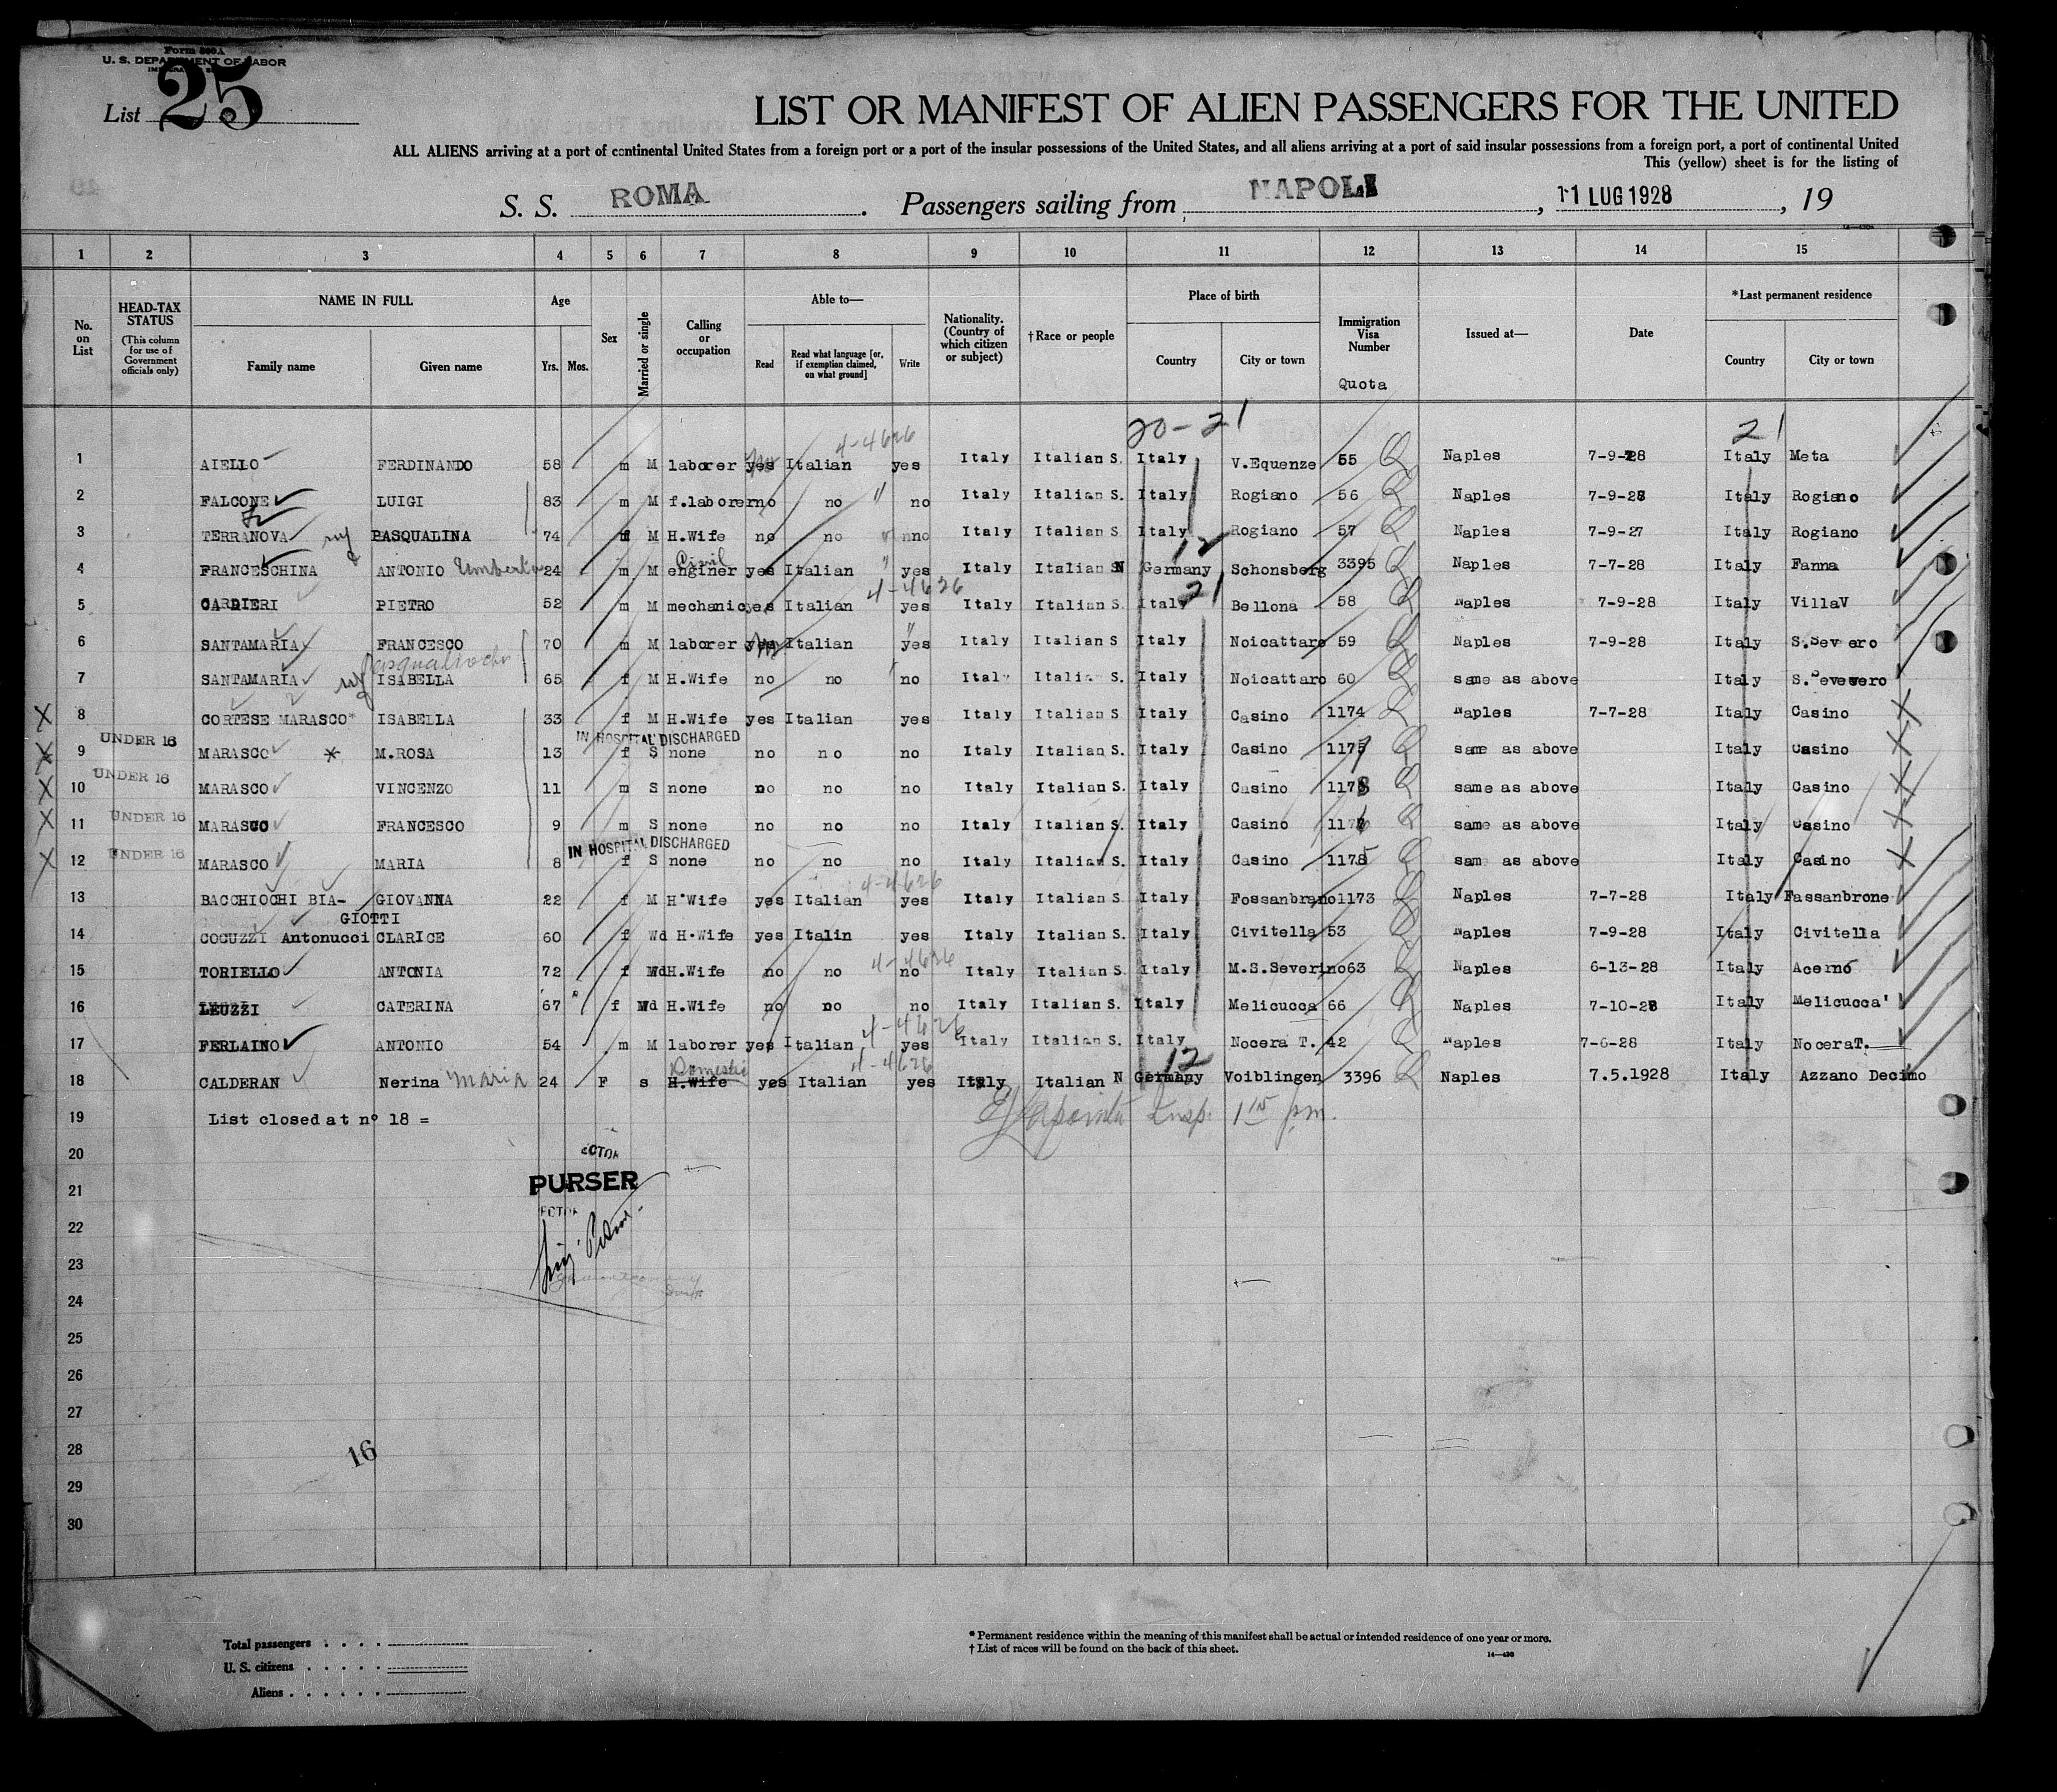 Form 500A
U. S. DEPARTMENT OF LABOR
List 25
LIST OR MANIFEST OF ALIEN PASSENGERS FOR THE UNITED
ALL ALIENS arriving at a port of continental United States from a foreign port or a port of the insular possessions of the United States, and all aliens arriving at a port of said insular possessions from a foreign port, a port of continental United
This (yellow) sheet is for the listing of
S. S. ROMA. Passengers sailing from NAPOLI, 11 LUG 1928, 19
1 2 3 4 5 6 7 8 9 10 11 12 13 14 15
No. on List
HEAD-TAX STATUS
(This column for use of Government officials only)
NAME IN FULL
Family name Given name
Age
Yrs. Mos.
Sex
Married or single
Calling or occupation
Able to—
Read Read what language [or, if exemption claimed, on what ground] Write
Nationality. (Country of which citizen or subject)
†Race or people
Place of birth
Country City or town
Immigration Visa Number
Quota
Issued at—
Date
*Last permanent residence
Country City or town
20-21 21
4-4626
1 AIELLO FERDINANDO 58 m M laborer yes Italian yes Italy Italian S. Italy V.Equenze 55 Q Naples 7-9-28 Italy Meta
2 FALCONE LUIGI 83 m M f.laborer no no " no Italy Italian S. Italy Rogiano 56 Q Naples 7-9-28 Italy Rogiano
3 TERRANOVA PASQUALINA 74 f M H.Wife no no no Italy Italian S Italy Rogiano 57 Q Naples 7-9-27 Italy Rogiano
Civil 12
4 FRANCESCHINA ANTONIO Umberto 24 m M enginer yes Italian " yes Italy Italian N Germany Schonsberg 3395 Q Naples 7-7-28 Italy Fanna
4-4626 21
5 CARDIERI PIETRO 52 m M mechanic yes Italian yes Italy Italian S. Italy Bellona 58 Q Naples 7-9-28 Italy VillaV
6 SANTAMARIA FRANCESCO 70 m M laborer yes Italian yes Italy Italian S Italy Noicattaro 59 Q Naples 7-9-28 Italy S.Severo
7 SANTAMARIA ISABELLA 65 f M H.Wife no no no Italy Italian S. Italy Noicattaro 60 Q same as above Italy S.
X 8 CORTESE MARASCO* ISABELLA 33 f M H.Wife yes Italian yes Italy Italian S Italy Casino 1174 Q Naples 7-7-28 Italy Casino X
UNDER 16 IN HOSPITAL DISCHARGED
X 9 MARASCO * M.ROSA 13 f S none no no no Italy Italian S. Italy Casino 1177 Q same as above Italy Casino X
UNDER 16
X 10 MARASCO VINCENZO 11 m S none no no no Italy Italian S. Italy Casino 1178 Q same as above Italy Casino X
UNDER 16
X 11 MARASCO FRANCESCO 9 m S none no no no Italy Italian S. Italy Casino 1176 Q same as above Italy Casino X
UNDER 16 IN HOSPITAL DISCHARGED
X 12 MARASCO MARIA 8 f S none no no no Italy Italian S. Italy Casino 1175 Q same as above Italy Casino X
4-4626
13 BACCHIOCHI BIA- GIOVANNA 22 f M H.Wife yes Italian yes Italy Italian S. Italy Fossanbrano 1173 Q Naples 7-7-28 Italy Fassanbrone
GIOTTI
14 COCUZZI Antonucci CLARICE 60 f Wd H.Wife yes Italin yes Italy Italian S. Italy Civitella 53 Q Naples 7-9-28 Italy Civitella
4-4626
15 TORIELLO ANTONIA 72 f Wd H.Wife no no no Italy Italian S. Italy M.S.Severino 63 Q Naples 6-13-28 Italy Acerno
16 LEUZZI CATERINA 67 f Wd H.Wife no no no Italy Italian S. Italy Melicucca 66 Q Naples 7-10-28 Italy Melicucca'
4-4626
17 FERLAINO ANTONIO 54 m M laborer yes Italian yes Italy Italian S. Italy Nocera T. 42 Q Naples 7-6-28 Italy NoceraT.
Domestic 4-4626 12
18 CALDERAN Nerina Maria 24 F s H.Wife yes Italian yes Italy Italian N Germany Voiblingen 3396 Q Naples 7.5.1928 Italy Azzano Decimo
19 List closed at n° 18 =
Insp. 1 15 pm.
20
PURSER
21
22
23
24
25
26
27
28
16
29
30
Total passengers
U. S. citizens
Aliens
* Permanent residence within the meaning of this manifest shall be actual or intended residence of one year or more.
† List of races will be found on the back of this sheet.
14—430